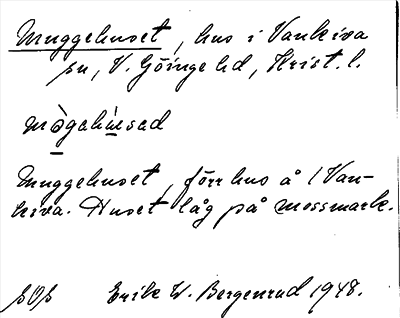 Muggehuset, hus i Vankiva
sn, V. Göinge hd, Krist. l.
mògahùsad
Muggehuset, förr hus å 1 Van-
kiva. Huset låg på mossmark.
SOS Erik W. Bergenrud 1948.